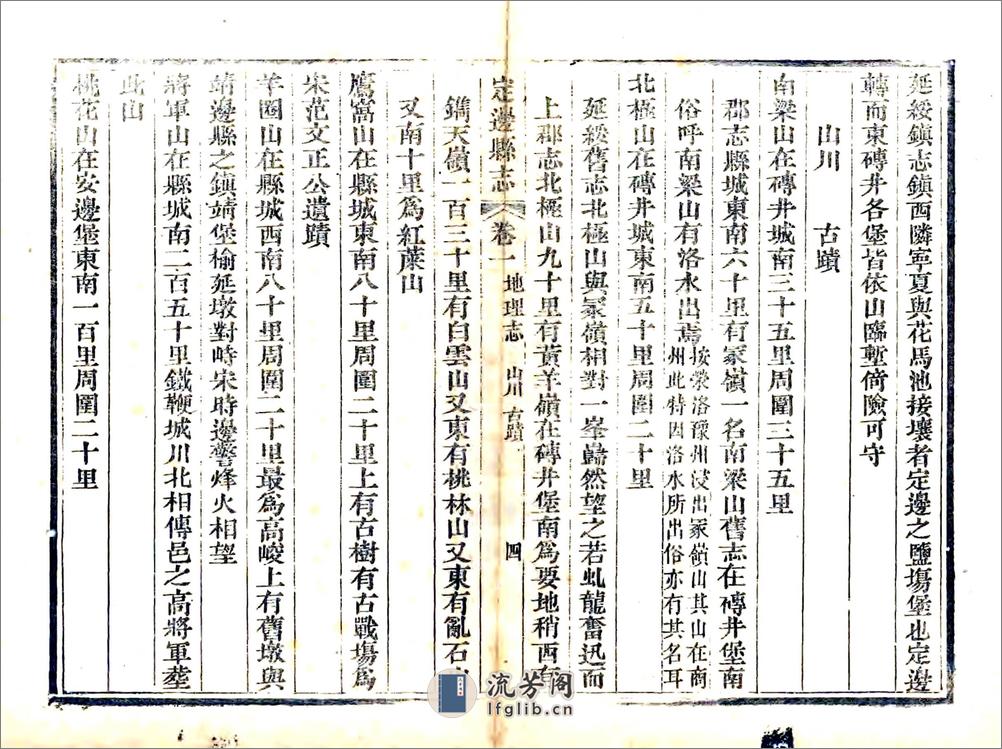 延綏鎮志鎮西隣寧夏與花馬池接壤者定邊之鹽塲堡也定邊
轉而東磚井各堡皆依山臨塹倚險可守
山川 古蹟
南梁山在磚井城南三十五里周圍三十五里
郡志縣城東南六十里有冢嶺一名南梁山舊志在磚井堡南
俗呼南梁山有洛水出焉
按滎洛豫州浸出冢嶺山其山在商
州此特因洛水所出俗亦有其名耳
北極山在磚井城東南五十里周圍二十里
延綏舊志北極山與冢嶺相對一峯巋然望之若虬龍奮迅而
上郡志北極山九十里有黃羊嶺在磚井堡南爲要地稍西有
定邊縣志 卷一 地理志 山川 古蹟 四
鐫天嶺一百三十里有白雲山又東有桃林山又東有亂石
又南十里爲紅葉山
鷹窩山在縣城東南八十里周圍二十里上有古樹有古戰塲爲
宋范文正公遺蹟
羊圈山在縣城西南八十里周圍二十里最爲高峻上有舊墩與
靖邊縣之鎮靖堡榆延墩對峙宋時邊警烽火相望
將軍山在縣城南二百五十里鐵鞭城川北相傳邑之高將軍葬
此山
桃花山在安邊堡東南一百里周圍二十里
流芳阁
lfglib.cn